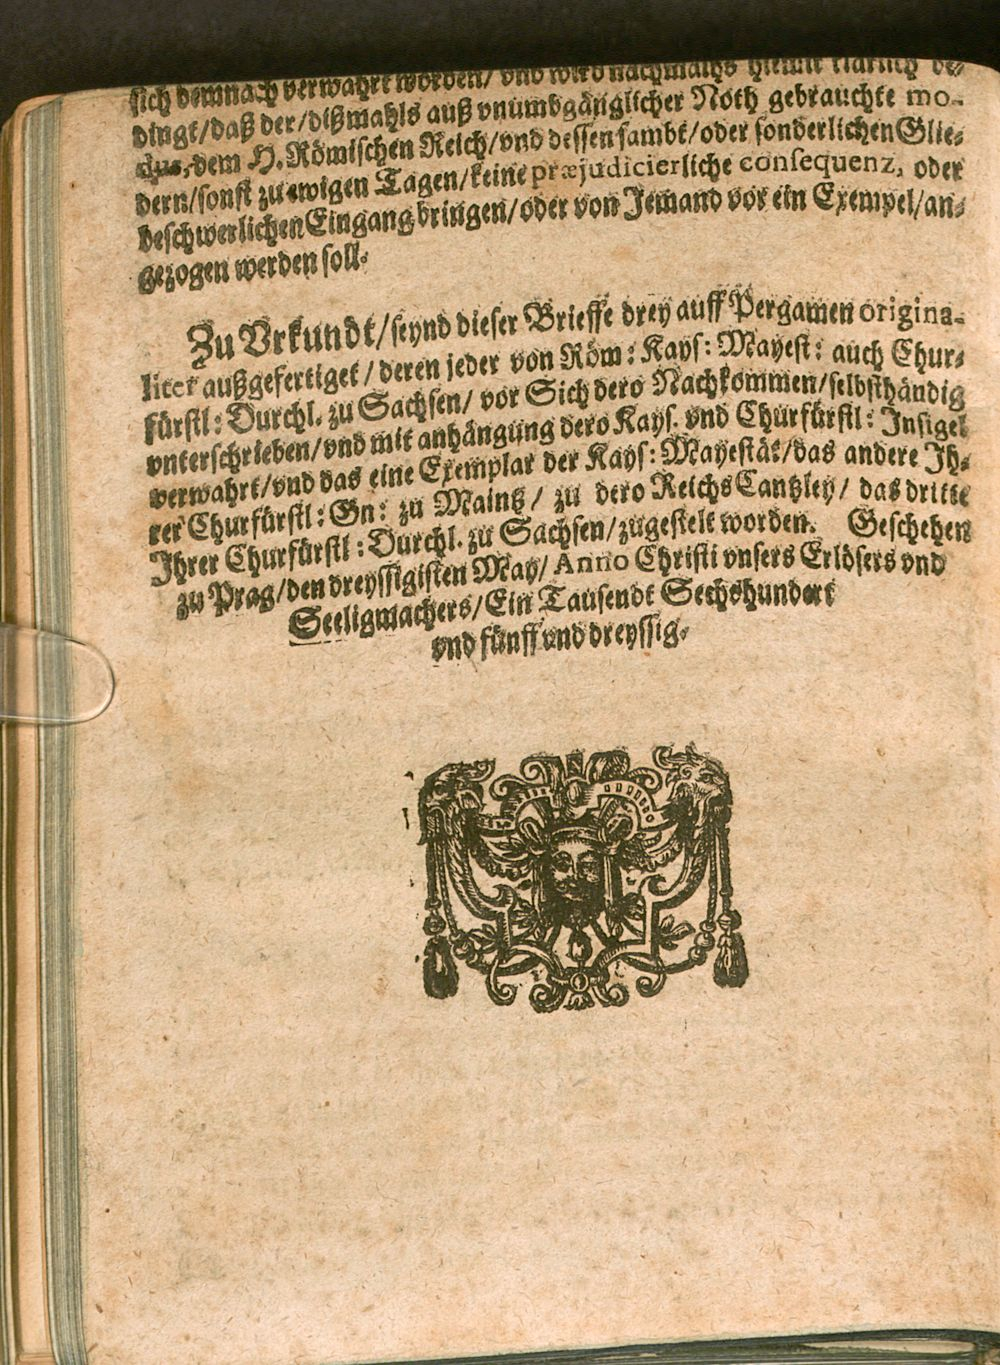 sich demnach verwahrt worden/ vnd wird nachmahls hiemit klärlich be-
dingt/daß der/dißmahls auß vnumbgänglicher Noth gebrauchte mo-
dus, dem H. Römischen Reich/vnd dessen sambt/oder sonderlichen Glie-
dern/sonst zu ewigen Tagen/keine præjudicierliche consequenz, oder
beschwerlichen Eingang bringen/oder von Jemand vor ein Exempel/an-
gezogen werden soll.
Zu Vrkundt/seynd dieser Brieffe drey auff Pergamen origina-
liter außgefertiget/deren jeder von Röm: Kays: Mayest: auch Chur-
fürstl: Durchl. zu Sachsen/ vor Sich dero Nachkommen/selbsthändig
vnterschrieben/vnd mit anhängung dero Kays. vnd Churfürstl: Insigel
verwahrt/vnd das eine Exemplar der Kays: Mayestät/das andere Ih-
rer Churfürstl: Gn: zu Maintz/ zu dero Reichs Cantzley/ das dritte
Ihrer Churfürstl: Durchl. zu Sachsen/zugestelt worden. Geschehen
zu Prag/den dreyssigisten May/ Anno Christi vnsers Erlösers vnd
Seeligmachers/Ein Tausendt Sechshundert
vnd fünff vnd dreyssig.